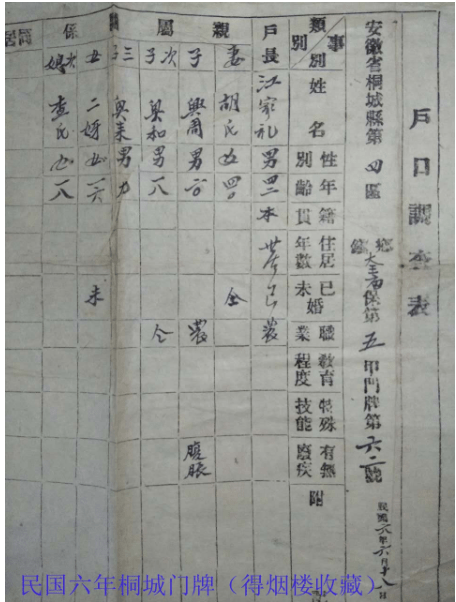 戶口調查表
安徽省桐城縣第四區鄉鎮大王廟保第五甲門牌第六二號
民國六年六月十八日
類別 事別 姓名 性別 年齡 籍貫 住居年數 已未婚 職業 教育程度 特殊技能 有無廢疾 附
戶長 江家礼 男 四二 本 已 農
親屬 係 居
妻 胡氏 女 仝
子 興周 男 農 腹脹
次子 興和 男 一八 仝
三子 興來 男 九
女 二 女 一六 未
大媳 查氏 女 一八
民国六年桐城门牌（得烟楼收藏）